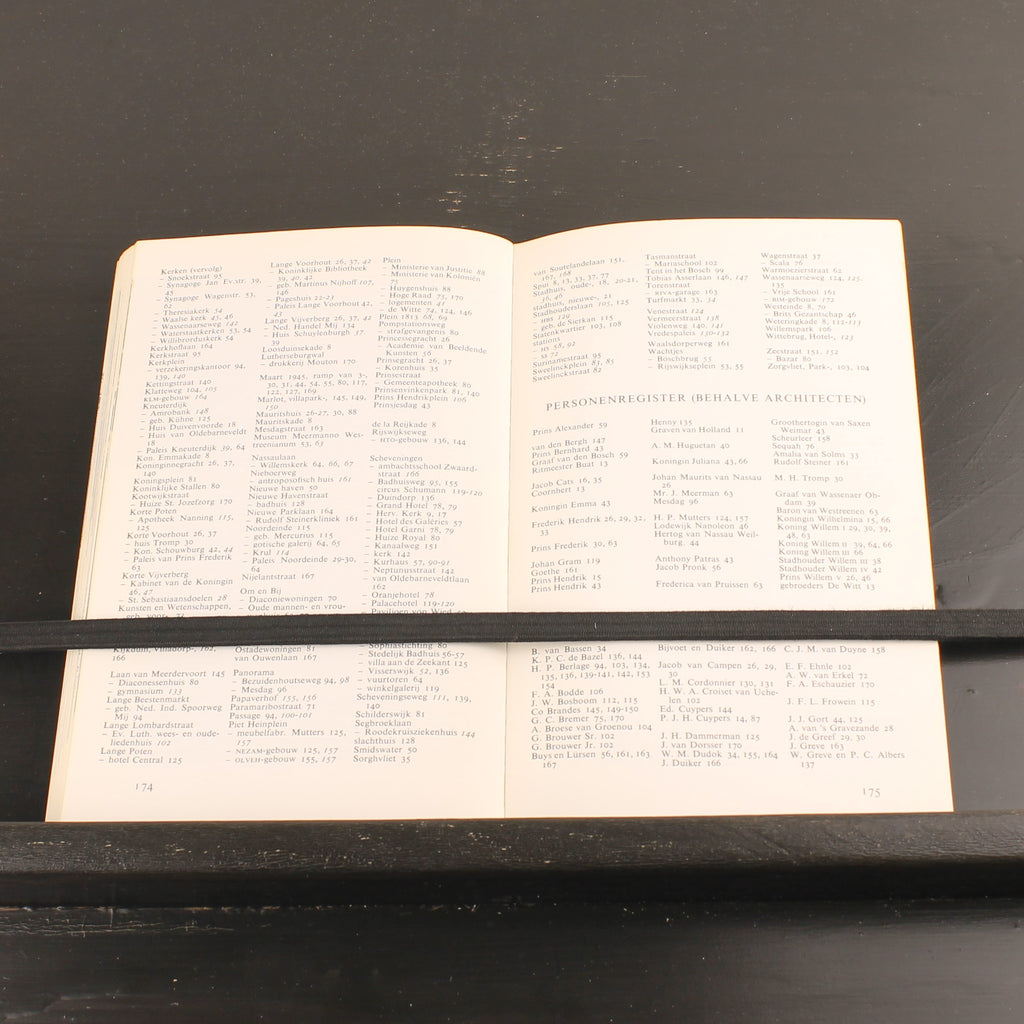 Kerken (vervolg)
– Snoekstraat 95
– Synagoge Jan Ev.str. 39,
45
– Synagoge Wagenstr. 53,
62
– Theresiakerk 54
– Waalse kerk 45, 46
– Wassenaarseweg 142
– Waterstaatkerken 53, 54
– Willibrorduskerk 54
Kerkhoflaan 164
Kerkstraat 95
Kerkplein
– verzekeringskantoor 94,
139, 140
Kettingstraat 140
Klatteweg 104, 105
KLM-gebouw 164
Kneuterdijk
– Amrobank 148
– geb. Kühne 125
– Huis Duivenvoorde 18
– Huis van Oldebarneveldt
18
– Paleis Kneuterdijk 39, 64
Kon. Emmakade 8
Koninginnegracht 26, 37,
140
Koningsplein 81
Koninklijke Stallen 80
Kootwijkstraat
– Huize St. Jozefzorg 170
Korte Poten
– Apotheek Nanning 115,
125
Korte Voorhout 26, 37
– huis Tromp 30
– Kon. Schouwburg 42, 44
– Paleis van Prins Frederik
63
Korte Vijverberg
– Kabinet van de Koningin
46, 47
– St. Sebastiaansdoelen 28
Kunsten en Wetenschappen,
166
Laan van Meerdervoort 145
– Diaconessenhuis 80
– gymnasium 133
Lange Beestenmarkt
– geb. Ned. Ind. Spoorweg
Mij 94
Lange Lombardstraat
– Ev. Luth. wees- en oude-
liedenhuis 102
Lange Poten
– hotel Central 125
Lange Voorhout 26, 37, 42
– Koninklijke Bibliotheek
39, 40, 42
– geb. Martinus Nijhoff 107,
146
– Pageshuis 22-23
– Paleis Lange Voorhout 42,
43
Lange Vijverberg 26, 37, 42
– Ned. Handel Mij 134
– Huis Schuylenburg 37,
39
Loosduinsekade 8
Lutherseburgwal
– drukkerij Mouton 170
Maart 1945, ramp van 3-,
30, 31, 44, 54, 55, 80, 117,
122, 127, 169
Marlot, villapark-, 145, 149,
150
Mauritshuis 26-27, 30, 88
Mauritskade 8
Mesdagstraat 163
Museum Meermanno Wes-
treenianum 53, 63
Nassaulaan
– Willemskerk 64, 66, 67
Nieboerweg
– antroposofisch huis 161
Nieuwe haven 50
Nieuwe Havenstraat
– gebouw 128
Nieuwe Parklaan 164
– Rudolf Steinerkliniek 161
Noordeinde 115
– geb. Mercurius 115
– gotische galerij 64, 65
– Krul 114
– Paleis Noordeinde 29-30,
64
Nijelantstraat 167
Om en Bij
– Diaconiewoningen 70
– Oude mannen- en vrou-
Ostadewoningen 81
van Ouwenlaan 167
Panorama
– Bezuidenhoutseweg 94, 98
– Mesdag 96
Papaverhof 155, 156
Paramaribostraat 71
Passage 94, 100-101
Piet Heinplein
– meubelfabr. Mutters 125,
157
– NEZAM-gebouw 125, 157
– OLVEH-gebouw 155, 157
Plein
– Ministerie van Justitie 88
– Ministerie van Koloniën
75
– Huygenshuis 88
– Hoge Raad 75, 170
– logementen 41
– de Witte 74, 124, 146
Plein 1813 68, 69
Pompstationsweg
– strafgevangenis 80
Princessegracht 26
– Academie van Beeldende
Kunsten 56
Prinsegracht 26, 37
– Korenhuis 35
Prinsestraat
– Gemeenteapotheek 80
Prinsenvinkenpark 81, 140
Prins Hendrikplein 106
Prinsjesdag 43
de la Reijkade 8
Rijswijkseweg
– HTO-gebouw 136, 144
Scheveningen
– ambachtsschool Zwaard-
straat 166
– Badhuisweg 95, 155
– circus Schumann 119-120
– Duindorp 136
– Grand Hotel 78, 79
– Herv. Kerk 9, 17
– Hotel des Galéries 57
– Hotel Garni 78, 79
– Huize Royal 80
– Kanaalweg 151
– kerk 142
– Kurhaus 57, 90-91
– Neptunusstraat 142
– van Oldebarneveldtlaan
162
– Oranjehotel 78
– Palacehotel 119-120
– Sophiastichting 80
– Stedelijk Badhuis 56-57
– villa aan de Zeekant 125
– Visserswijk 52, 136
– vuurtoren 64
– winkelgalerij 119
Scheveningseweg 111, 139,
140
Schilderswijk 81
Segbroeklaan
– Roodekruisziekenhuis 144
slachthuis 128
Smidswater 50
Sorghvliet 35
174
van Soutelandelaan 151,
167, 168
Spui 8, 13, 33, 37, 77
Stadhuis, oude-, 18, 20-21,
36, 46
stadhuis, nieuwe-, 21
Stadhouderslaan 105, 125
– HBS 129
– geb. de Sierkan 115
Statenkwartier 103, 108
stations
– HS 58, 92
– SS 72
Surinamestraat 95
Sweelinckplein 83, 85
Sweelinckstraat 82
Tasmanstraat
– Mariaschool 102
Tent in het Bosch 99
Tobias Asserlaan 146, 147
Torenstraat
– RIVA-garage 163
Turfmarkt 33, 34
Venestraat 124
Vermeerstraat 138
Violenweg 140, 141
Vredespaleis 130-132
Waalsdorperweg 161
Wachtjes
– Boschbrug 55
– Rijswijkseplein 53, 55
Wagenstraat 37
– Scala 76
Warmoezierstraat 62
Wassenaarseweg 124, 125,
135
– Vrije School 161
– BIM-gebouw 172
Westeinde 8, 70
– Brits Gezantschap 46
Weteringkade 8, 112-113
Willemspark 106
Wittebrug, Hotel-, 123
Zeestraat 151, 152
– Bazar 80
Zorgvliet, Park-, 103, 104
PERSONENREGISTER (BEHALVE ARCHITECTEN)
Prins Alexander 59
van den Bergh 147
Prins Bernhard 43
Graaf van den Bosch 59
Ritmeester Buat 13
Jacob Cats 16, 35
Coornhert 13
Koningin Emma 43
Frederik Hendrik 26, 29, 32,
33
Prins Frederik 30, 63
Johan Gram 119
Goethe 161
Prins Hendrik 15
Prins Hendrik 43
Henny 135
Graven van Holland 11
A. M. Huguetan 40
Koningin Juliana 43, 66
Johan Maurits van Nassau
26
Mr. J. Meerman 63
Mesdag 96
H. P. Mutters 124, 157
Lodewijk Napoleon 46
Hertog van Nassau Weil-
burg 44
Anthony Patras 43
Jacob Pronk 56
Frederica van Pruissen 63
Groothertogin van Saxen
Weimar 43
Scheurleer 158
Sequah 76
Amalia van Solms 33
Rudolf Steiner 161
M. H. Tromp 30
Graaf van Wassenaer Ob-
dam 39
Baron van Westreenen 63
Koningin Wilhelmina 15, 66
Koning Willem I 29, 30, 39,
48, 63
Koning Willem II 39, 64, 66
Koning Willem III 66
Stadhouder Willem III 38
Stadhouder Willem IV 42
Prins Willem V 26, 46
gebroeders De Witt 13
B. van Bassen 34
K. P. C. de Bazel 136, 144
H. P. Berlage 94, 103, 134,
135, 136, 139-141, 142, 153,
154
F. A. Bodde 106
J. W. Bosboom 112, 115
Co Brandes 145, 149-150
G. C. Bremer 75, 170
A. Broese van Groenou 104
G. Brouwer Sr. 102
G. Brouwer Jr. 102
Buys en Lürsen 56, 161, 163,
167
Bijvoet en Duiker 162, 166
Jacob van Campen 26, 29,
30
L. M. Cordonnier 130, 131
H. W. A. Croiset van Uche-
len 102
Ed. Cuypers 144
P. J. H. Cuypers 14, 87
J. H. Dammerman 125
J. van Dorsser 170
W. M. Dudok 34, 155, 164
J. Duiker 166
C. J. M. van Duyne 158
E. F. Ehnle 102
A. W. van Erkel 72
F. A. Eschauzier 170
J. F. L. Frowein 115
J. J. Gort 44, 125
A. van 's Gravezande 28
J. de Greef 29, 30
J. Greve 163
W. Greve en P. C. Albers
137
175